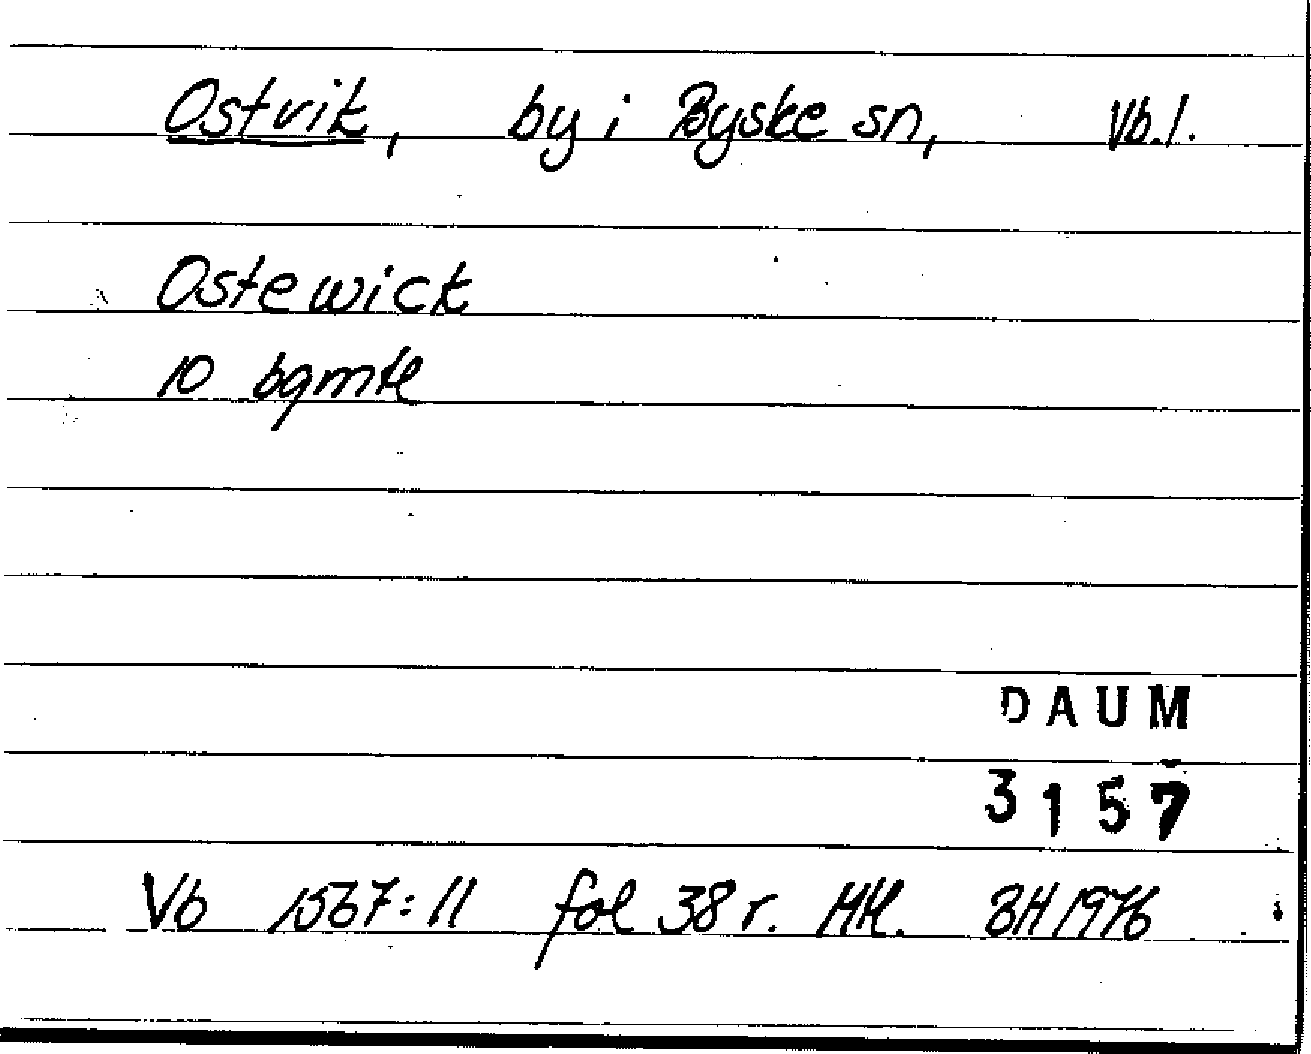 Ostvik, by i Byske sn, Vb.l.
Ostewick
10 bgmtl
DAUM
3157
Vb 1567:11 fol 38 r. HH. BH 1976